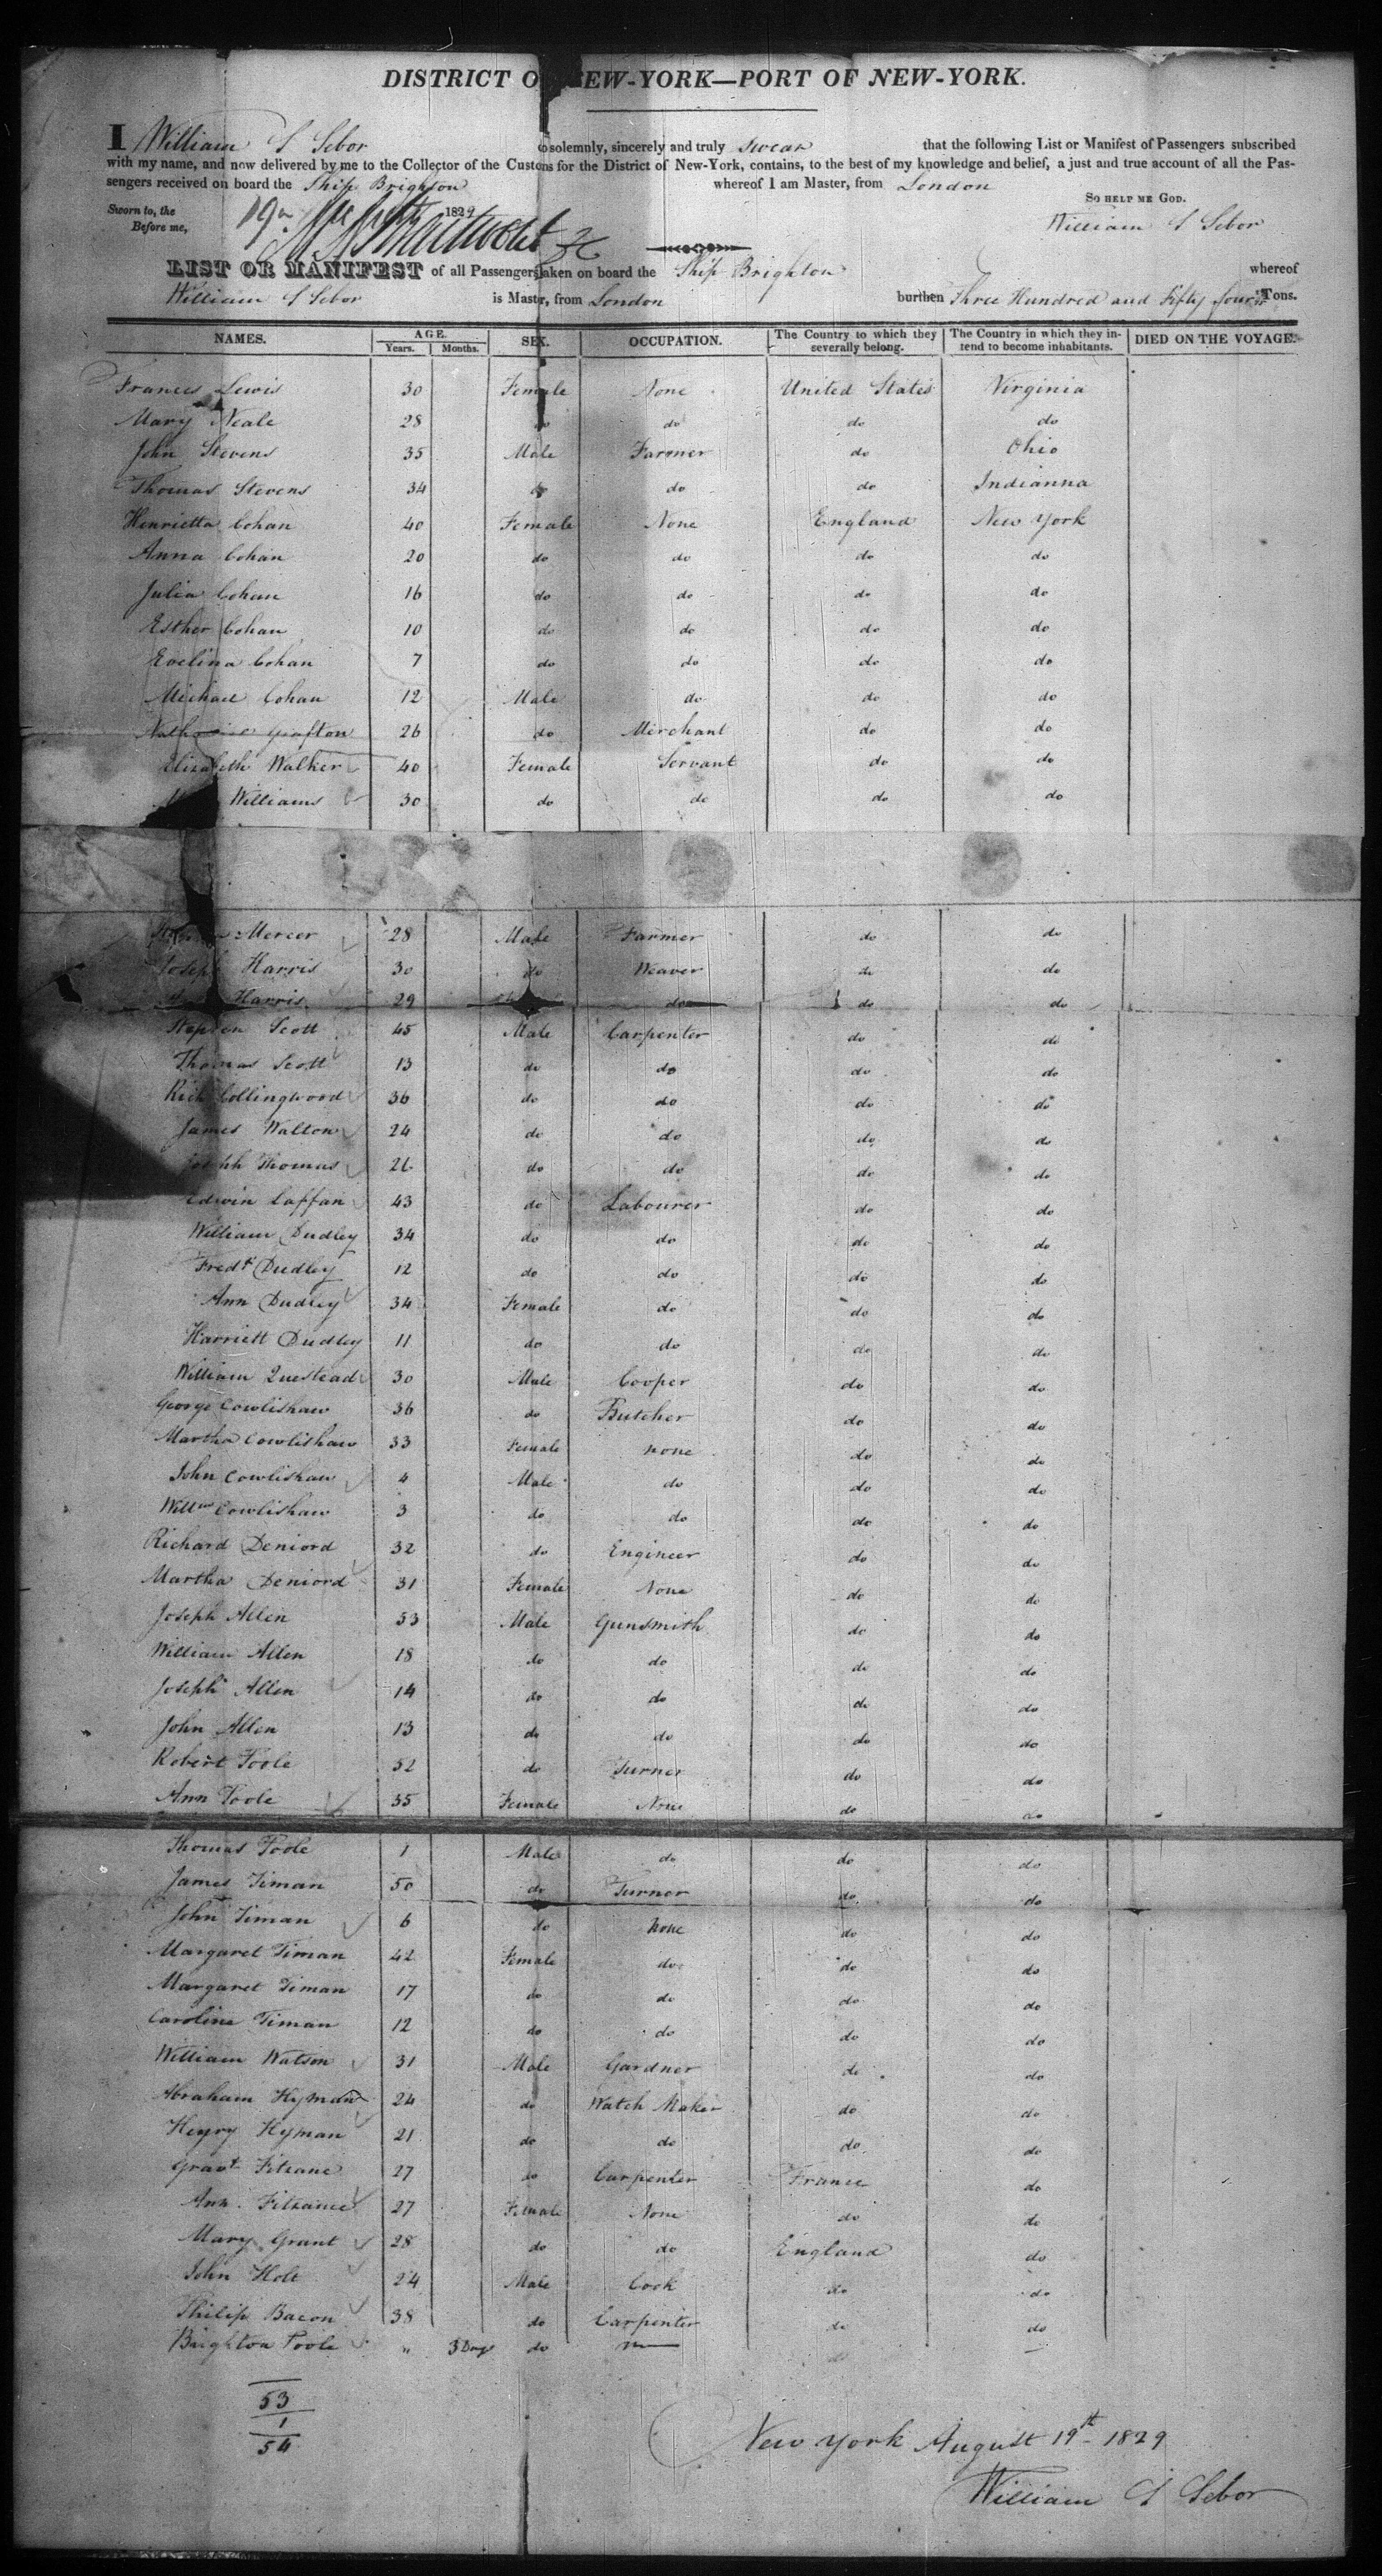 DISTRICT OF NEW-YORK—PORT OF NEW-YORK.
I William S Sebor do solemnly, sincerely and truly swear that the following List or Manifest of Passengers subscribed
with my name, and now delivered by me to the Collector of the Customs for the District of New-York, contains, to the best of my knowledge and belief, a just and true account of all the Pas-
sengers received on board the Ship Brighton whereof I am Master, from London
Sworn to, the 19th 1829 SO HELP ME GOD.
Before me, William S Sebor
LIST OR MANIFEST of all Passengers taken on board the Ship Brighton whereof
William S Sebor is Master, from London burthen Three Hundred and Fifty four Tons.
NAMES. AGE. Years. Months. SEX. OCCUPATION. The Country to which they severally belong. The Country in which they intend to become inhabitants. DIED ON THE VOYAGE.
Frances Lewis 30 Female None United States Virginia
Mary Neale 28 do do do do
John Stevens 35 Male Farmer do Ohio
Thomas Stevens 34 do do do Indianna
Henrietta Cohan 40 Female None England New York
Anna Cohan 20 do do do do
Julia Cohan 16 do do do do
Esther Cohan 10 do do do do
Evelina Cohan 7 do do do do
Michael Cohan 12 Male do do do
Grafton 26 do Merchant do do
Elizabeth Walker 40 Female Servant do do
Williams 30 do do do do
Mercer 28 Male Farmer do do
Joseph Harris 30 do Weaver do do
Harris 29 do do do
Stephen Scott 45 Male Carpenter do do
Thomas Scott 13 do do do do
Rich Collingwood 36 do do do do
James Walton 24 do do do do
Joseph Thomas 26 do do do do
Edwin Caffan 43 do Labourer do do
William Dudley 34 do do do do
Fredk Dudley 12 do do do do
Ann Dudley 34 Female do do do
Harriett Dudley 11 do do do do
William Questead 30 Male Cooper do do
George Cowlishaw 36 do Butcher do do
Martha Cowlishaw 33 Female none do do
John Cowlishaw 4 Male do do do
Willm Cowlishaw 3 do do do do
Richard Deniord 32 do Engineer do do
Martha Deniord 31 Female None do do
Joseph Allen 33 Male Gunsmith do do
William Allen 18 do do do do
Joseph Allen 14 do do do do
John Allen 13 do do do do
Robert Poole 32 do Turner do do
Ann Poole 35 Female None do do
Thomas Poole 1 Male do do do
James Timan 50 do Turner do do
John Timan 6 do none do do
Margaret Timan 42 Female do do do
Margaret Timan 17 do do do do
Caroline Timan 12 do do do do
William Watson 31 Male Gardner do do
Abraham Hyman 24 do Watch Maker do do
Henry Hyman 21 do do do do
27 do Carpenter France do
Ann 27 Female None do do
Mary Grant 28 do do England do
John Holt 24 Male Cook do do
Philip Bacon 38 do Carpenter do do
Brighton Poole " 3 Days do
53
1
54
New York August 19th 1829
William S Sebor